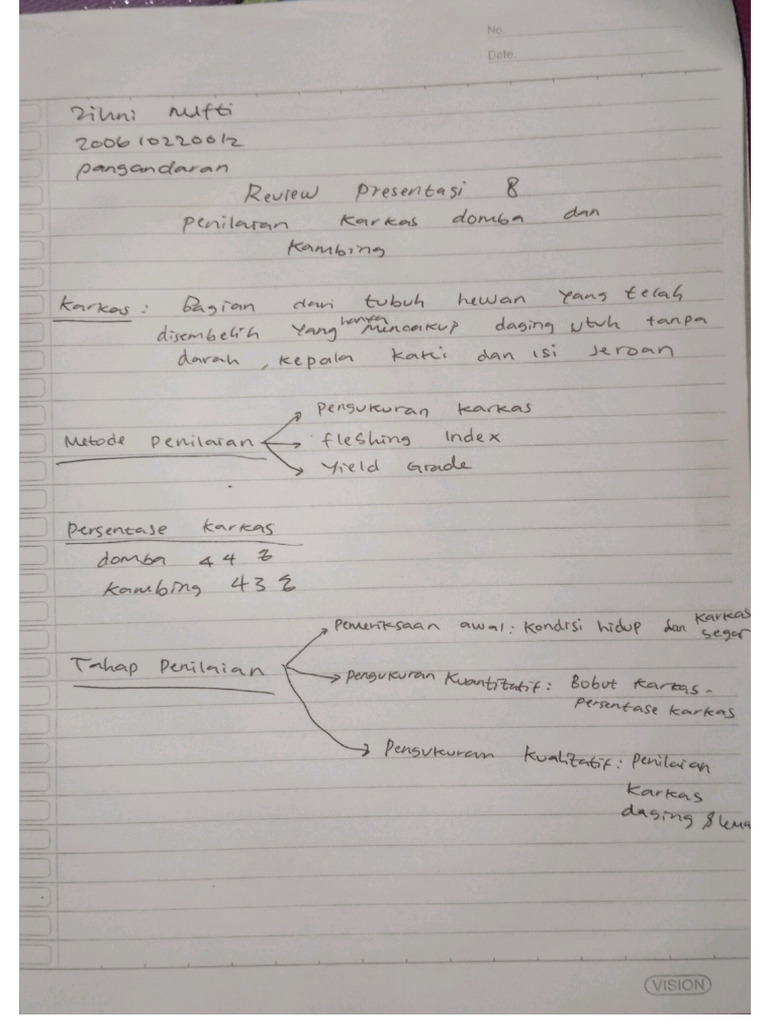 No.
Date.
Zihni Mufti
200610220012
Pangandaran
Review Presentasi 8
Penilaian Karkas domba dan
Kambing
Karkas : Bagian dari tubuh hewan yang telah
disembelih yang hanya mencakup daging utuh tanpa
darah, kepala kaki dan isi jeroan
Metode Penilaian
Pengukuran karkas
fleshing Index
Yield Grade
Persentase Karkas
domba 44 %
kambing 43 %
Tahap Penilaian
Pemeriksaan awal : Kondisi hidup dan karkas
segar
Pengukuran Kuantitatif : Bobot karkas -
Persentase karkas
Pengukuran Kualitatif : Penilaian
karkas
daging &
VISION